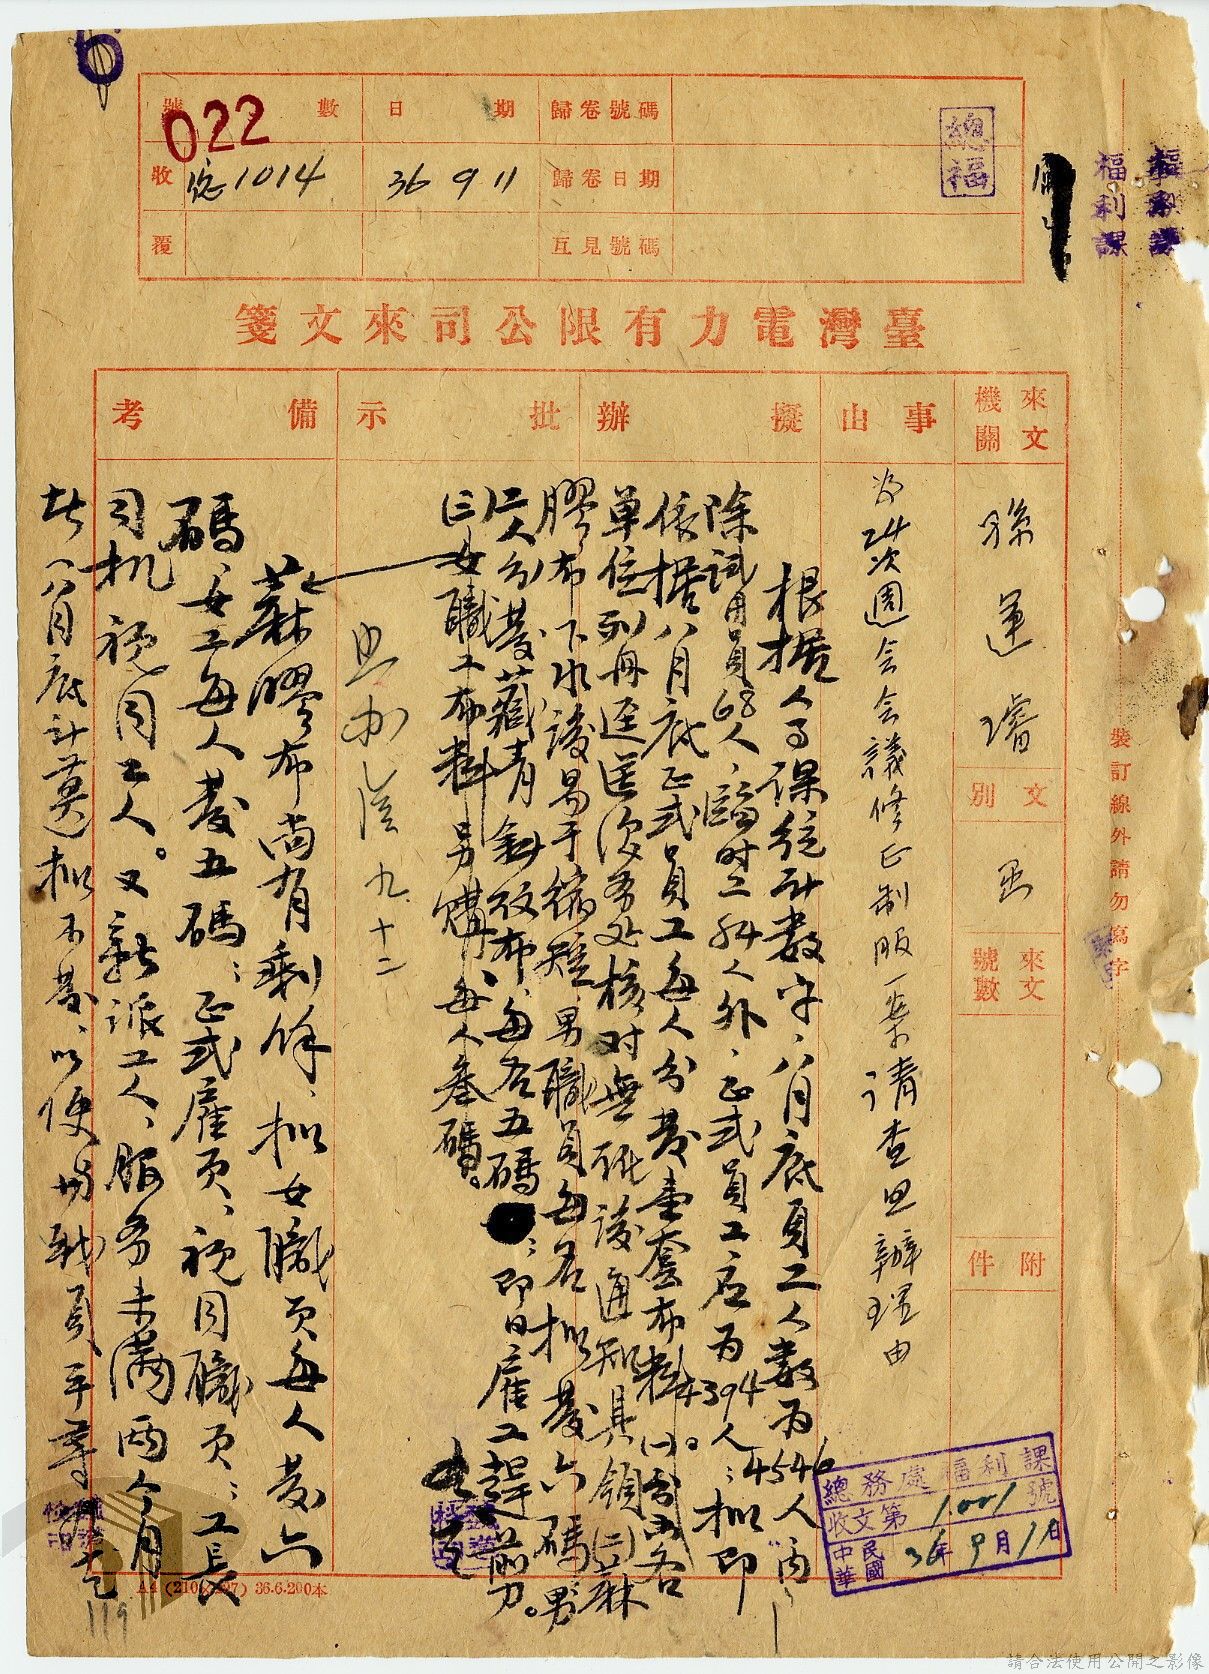 022
號數
日期
歸卷號碼
收
總1014
36 9 11
歸卷日期
覆
互見號碼
總福
福利課
福利課
臺灣電力有限公司來文箋
來文機關
孫運璿
文別
來文號數
附件
事由
為24次週会会議修正制服一案請查照辦理由
擬辦
根據人事課統計數字、八月底員工人數為4546人內
除試用員68人、臨時工84人外、正式員工應為4394人；擬即
依據八月底正式員工每人分發壹套布料。(一)各
單位列冊逕送總務處核對無訛後通知具領(二)麻
膠布下水後易于縮短男職員每名擬發六碼男
工人分發藏青斜紋布、每名五碼；即日雇工趕剪。
(三)女職工布料另購、每人叁碼。
批示
照办 九、十二
備考
麻膠布尚有剩餘、擬女職員每人發六
碼、女工每人發五碼；正式雇員、視同職員；工長
司机視同工人。又新派工人、服務未滿兩個月
者(八月底計算)擬不發、以便
總務處福利課
收文第1001號
中華民國36年9月11日
裝訂線外請勿寫字
A4 (210×297) 36.6.200本
119
請合法使用公開之影像